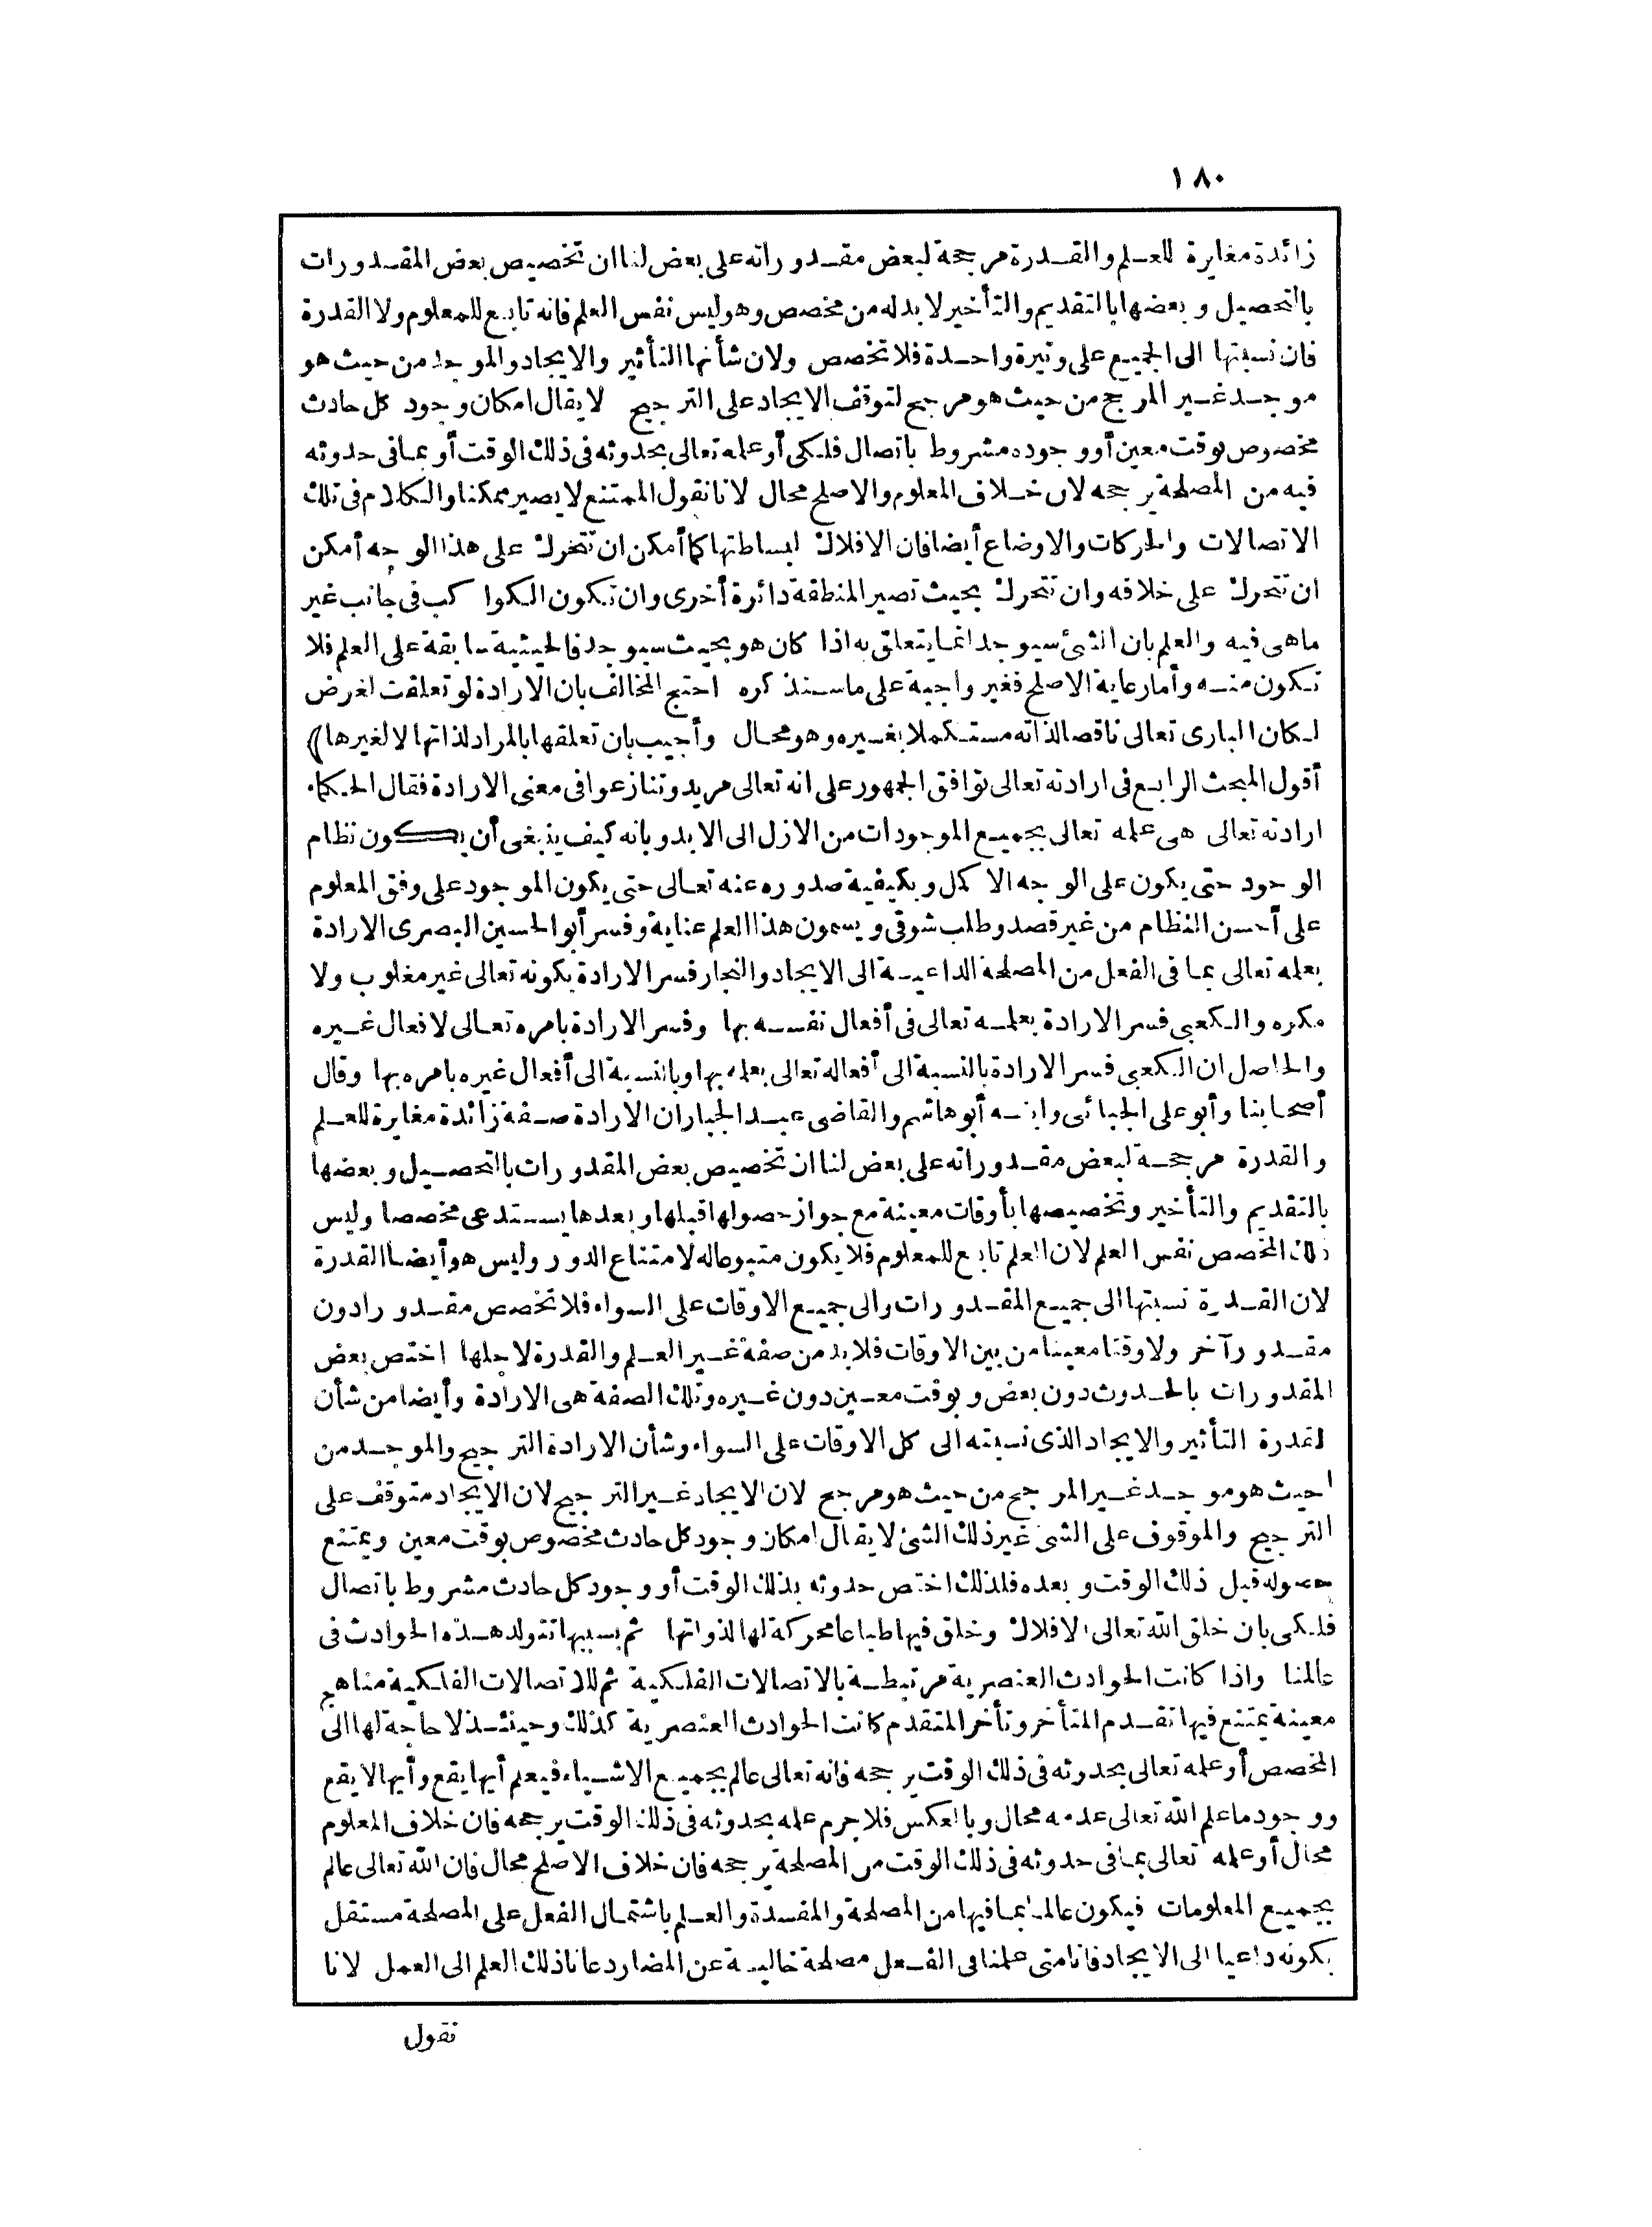 ١٨٠
زائدة مغايرة للعلم والقدرة مرجحة لبعض مقدوراته على بعض لنا ان تخصيص بعض المقدورات
بالتحصيل وبعضها بالتقديم والتأخير لا بد له من مخصص وهو ليس نفس العلم فانه تابع للمعلوم ولا القدرة
فان نسبتها الى الجميع على وتيرة واحدة فلا تخصص ولان شأنها التأثير والايجاد والموجد من حيث هو
موجد غير المرجح من حيث هو مرجح لتوقف الايجاد على الترجيح لا يقال امكان وجود كل حادث
مخصوص بوقت معين أو وجوده مشروط باتصال فلكى أو علمه تعالى بحدوثه فى ذلك الوقت أو بما فى حدوثه
فيه من المصلحة يرجحه لان خلاف المعلوم والاصلح محال لانا نقول الممتنع لا يصير ممكنا والكلام فى تلك
الاتصالات والحركات والاوضاع أيضا فان الافلاك لبساطتها كما أمكن ان تتحرك على هذا الوجه أمكن
ان تتحرك على خلافه وان تتحرك بحيث تصير المنطقة دائرة أخرى وان تكون الكواكب فى جانب غير
ماهى فيه والعلم بان الشئ سيوجد انما يتعلق به اذا كان هو بحيث سيوجد فالحيثية سابقة على العلم فلا
تكون منه وأما رعاية الاصلح فغير واجبة على ما سنذكره احتج المخالف بان الارادة لو تعلقت لغرض
لكان البارى تعالى ناقصا لذاته مستكملا بغيره وهو محال وأجيب بان تعلقها بالمراد لذاتها لا لغيرها)
أقول المبحث الرابع فى ارادته تعالى توافق الجمهور على انه تعالى مريد وتنازعوا فى معنى الارادة فقال الحكماء
ارادته تعالى هى علمه تعالى بجميع الموجودات من الازل الى الابد وبانه كيف ينبغى أن يكون نظام
الوجود حتى يكون على الوجه الاكمل وبكيفية صدوره عنه تعالى حتى يكون الموجود على وفق المعلوم
على أحسن النظام من غير قصد وطلب شوقى ويسمون هذا العلم عناية وفسر أبو الحسين البصرى الارادة
بعلمه تعالى بما فى الفعل من المصلحة الداعية الى الايجاد والنجار فسر الارادة بكونه تعالى غير مغلوب ولا
مكره والكعبى فسر الارادة بعلمه تعالى فى أفعال نفسه بها وفسر الارادة بامره تعالى لافعال غيره
والحاصل ان الكعبى فسر الارادة بالنسبة الى أفعاله تعالى بعلمه بها وبالنسبة الى أفعال غيره بامره بها وقال
أصحابنا وأبو على الجبائى وابنه أبو هاشم والقاضى عبد الجبار ان الارادة صفة زائدة مغايرة للعلم
والقدرة مرجحة لبعض مقدوراته على بعض لنا ان تخصيص بعض المقدورات بالتحصيل وبعضها
بالتقديم والتأخير وتخصيصها بأوقات معينة مع جواز حصولها قبلها وبعدها يستدعى مخصصا وليس
ذلك المخصص نفس العلم لان العلم تابع للمعلوم فلا يكون متبوعا له لامتناع الدور وليس هو أيضا القدرة
لان القدرة نسبتها الى جميع المقدورات والى جميع الاوقات على السواء فلا تخصص مقدورا دون
مقدور آخر ولا وقتا معينا من بين الاوقات فلا بد من صفة غير العلم والقدرة لاجلها اختص بعض
المقدورات بالحدوث دون بعض وبوقت معين دون غيره وتلك الصفة هى الارادة وأيضا من شأن
القدرة التأثير والايجاد الذى نسبته الى كل الاوقات على السواء وشأن الارادة الترجيح والموجد من
حيث هو موجد غير المرجح من حيث هو مرجح لان الايجاد غير الترجيح لان الايجاد متوقف على
الترجيح والموقوف على الشئ غير ذلك الشئ لا يقال امكان وجود كل حادث مخصوص بوقت معين ويمتنع
حصوله قبل ذلك الوقت وبعده فلذلك اختص حدوثه بذلك الوقت أو وجود كل حادث مشروط باتصال
فلكى بان خلق الله تعالى الافلاك وخلق فيها طباعا محركة لها لذواتها ثم بسببها تتولد هذه الحوادث فى
عالمنا واذا كانت الحوادث العنصرية مرتبطة بالاتصالات الفلكية ثم للاتصالات الفلكية مناهج
معينة يمتنع فيها تقدم المتأخر وتأخر المتقدم كانت الحوادث العنصرية كذلك وحينئذ لا حاجة لها الى
المخصص أو علمه تعالى بحدوثه فى ذلك الوقت يرجحه فانه تعالى عالم بجميع الاشياء فيعلم أيها يقع وأيها لا يقع
ووجود ما علم الله تعالى عدمه محال وبالعكس فلا جرم علمه بحدوثه فى ذلك الوقت يرجحه فان خلاف المعلوم
محال أو علمه تعالى بما فى حدوثه فى ذلك الوقت من المصلحة يرجحه فان خلاف الاصلح محال فان الله تعالى عالم
بجميع المعلومات فيكون عالما بما فيها من المصلحة والمفسدة والعلم باشتمال الفعل على المصلحة مستقل
بكونه داعيا الى الايجاد فانا متى علمنا فى الفعل مصلحة خالية عن المضار دعانا ذلك العلم الى العمل لانا
نقول